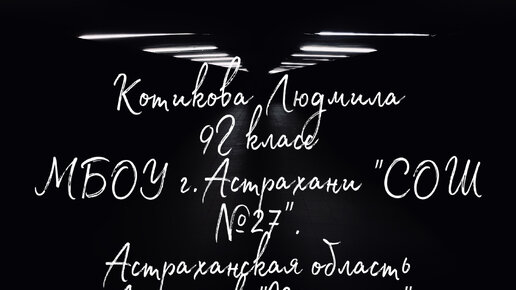 Котикова Людмила
9Г класс
МБОУ г.Астрахани "СОШ
№27".
Астраханская область